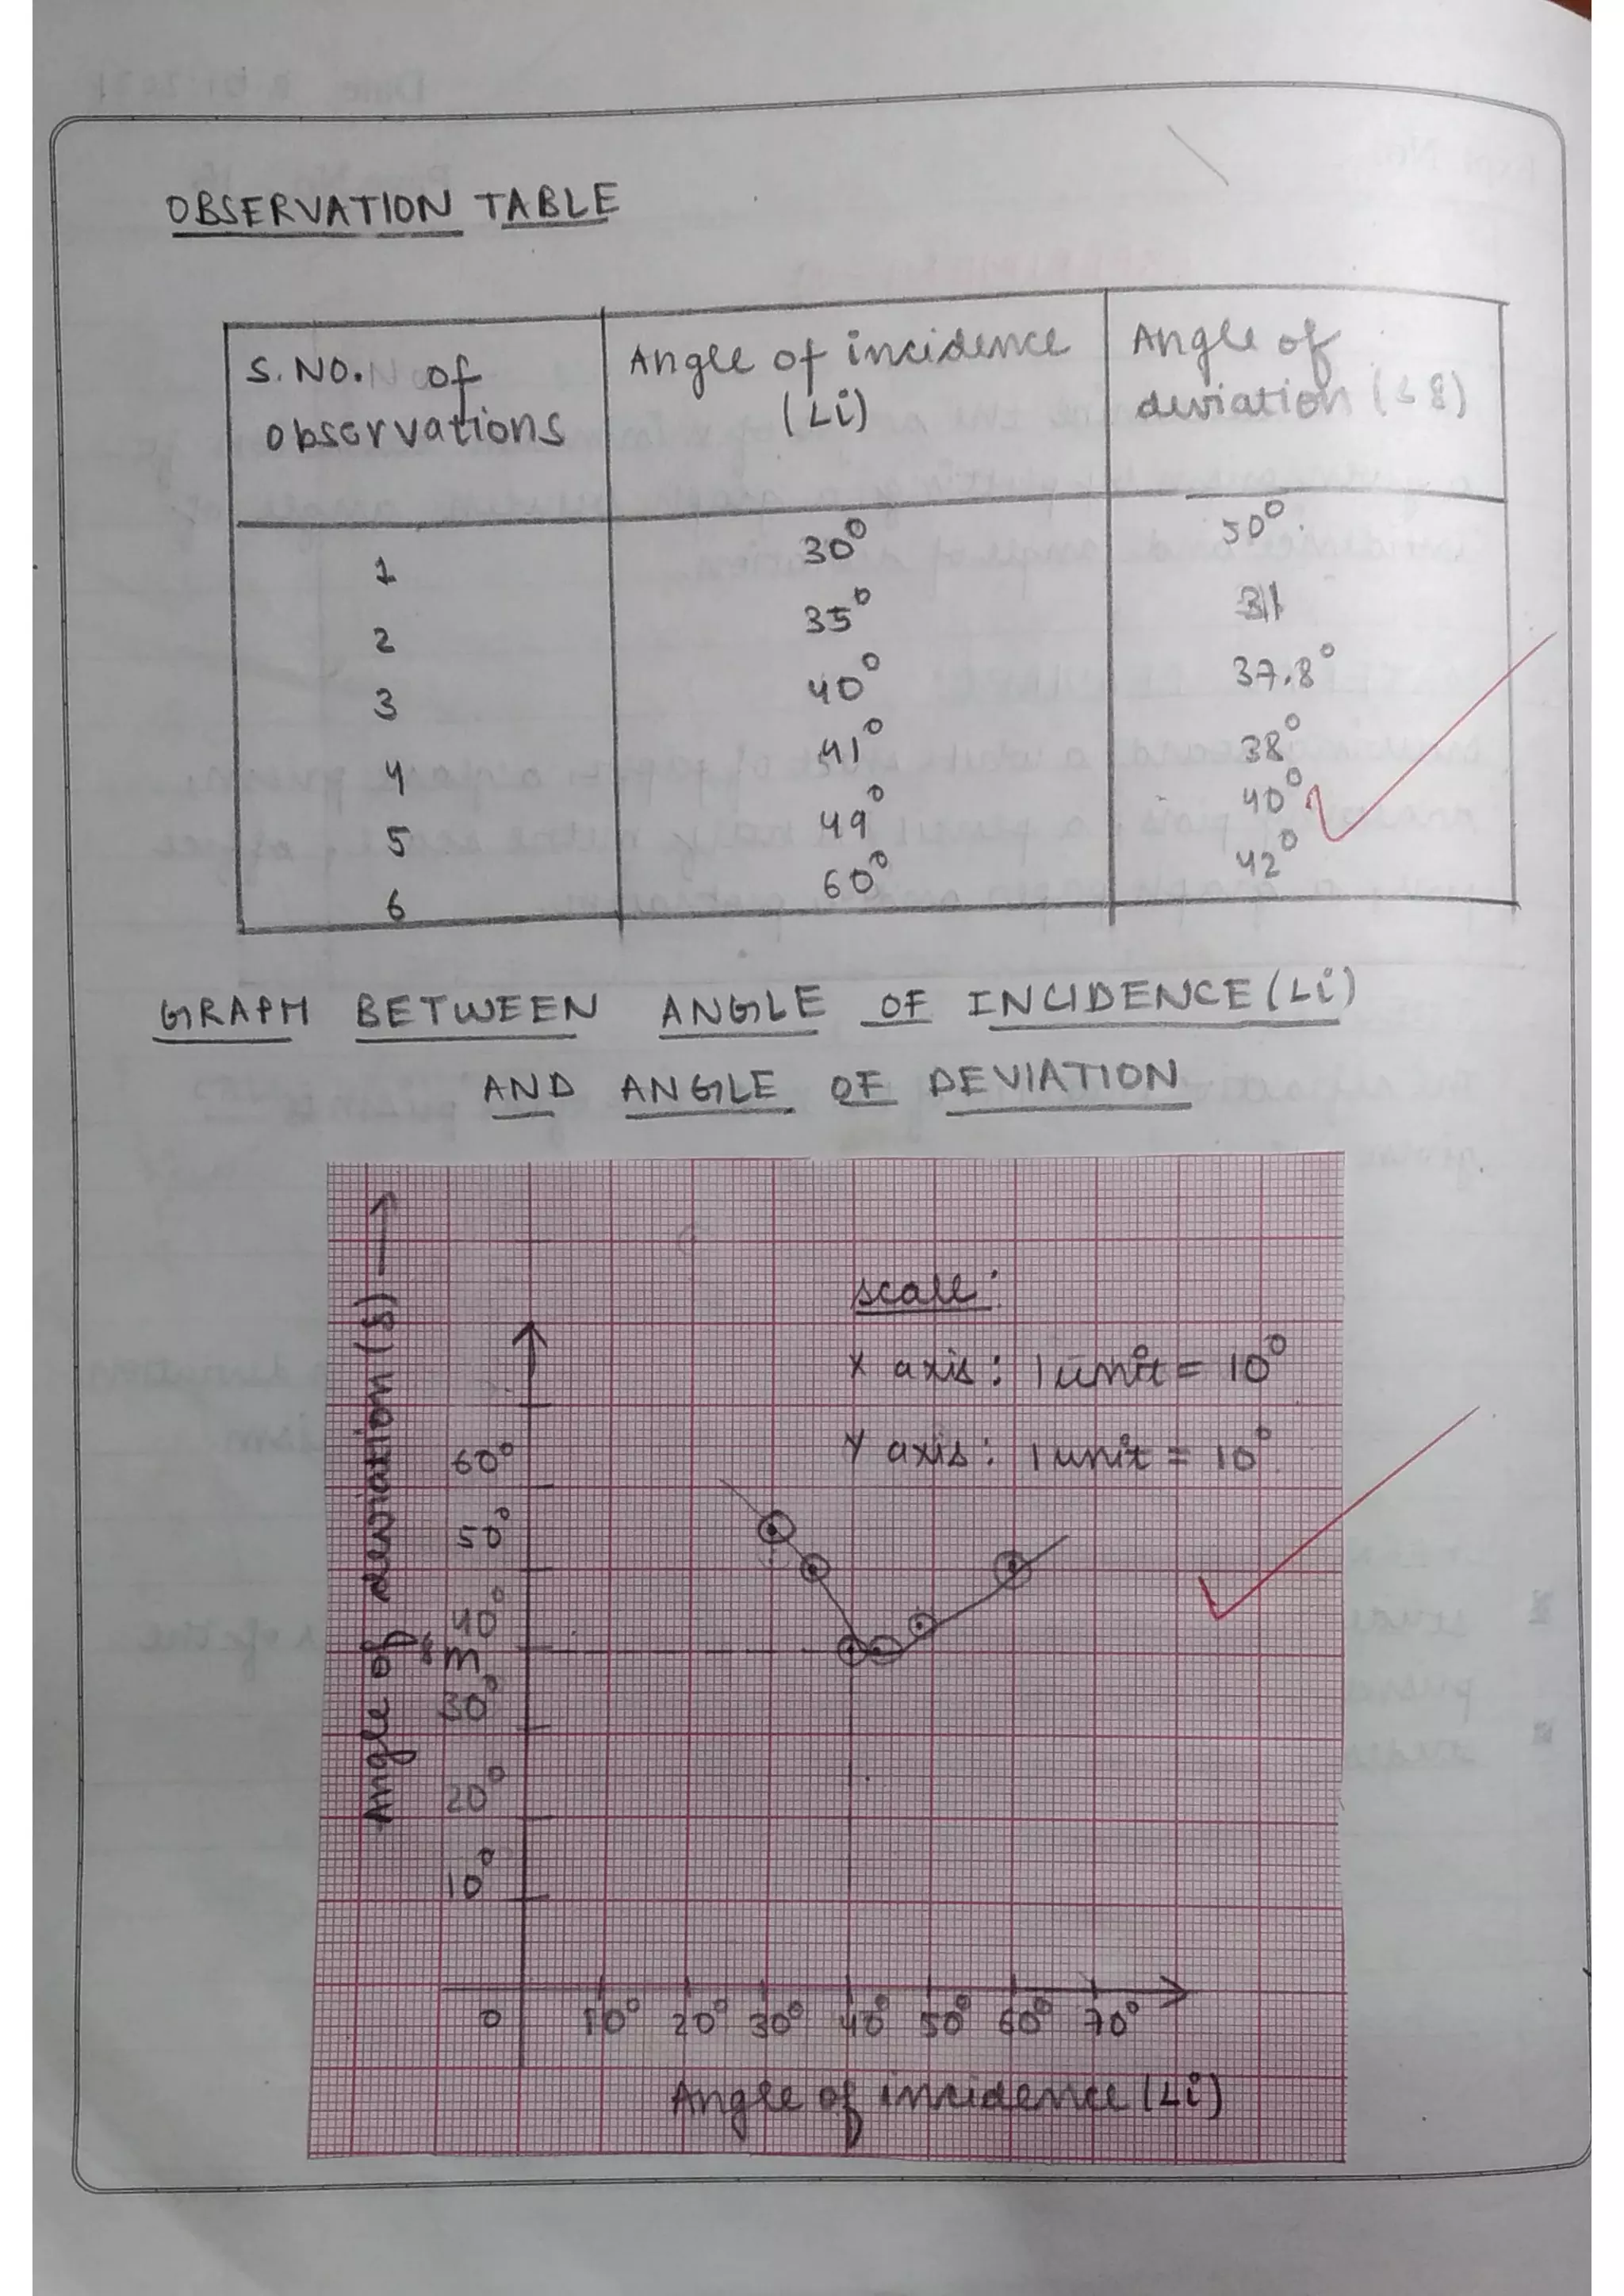 OBSERVATION TABLE
S. NO. of observations
Angle of incidence (∠i)
Angle of deviation (∠δ)
1 30° 50°
2 35° 31
3 40° 37.8°
4 41° 38°
5 49° 40°
6 60° 42°
GRAPH BETWEEN ANGLE OF INCIDENCE (∠i)
AND ANGLE OF DEVIATION
Angle of deviation (δ)
scale:
X axis: 1 unit = 10°
Y axis: 1 unit = 10°
60°
50°
40°
δm
30°
20°
10°
0 10° 20° 30° 40° 50° 60° 70°
Angle of incidence (∠i)